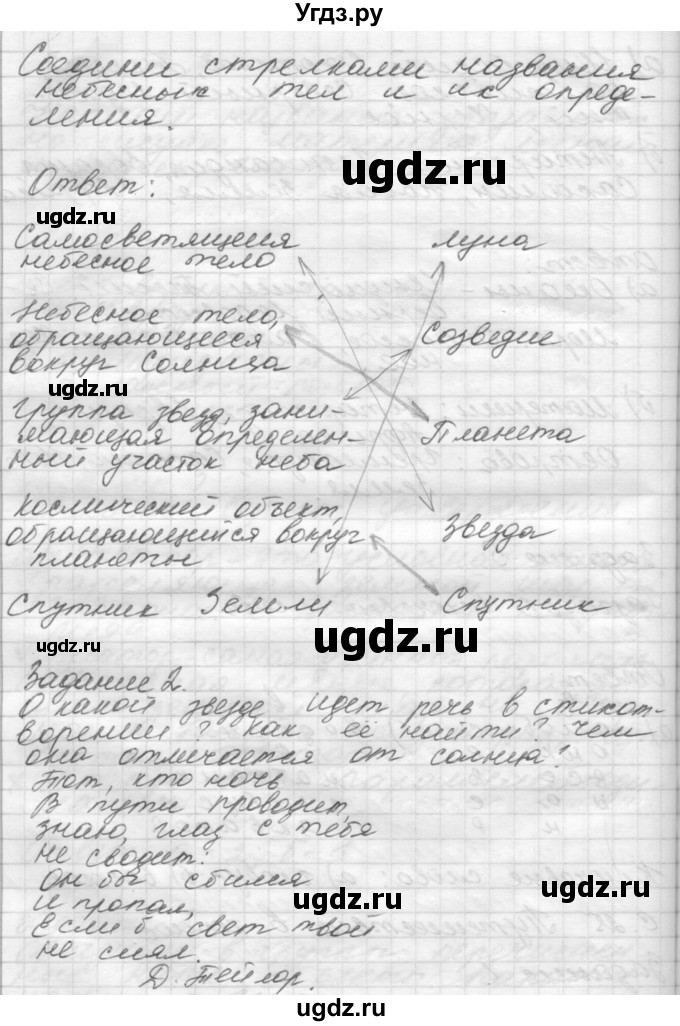 Угдз.ру
Соедини стрелками названия
небесных тел и их опреде-
ления.
Ответ:
ugdz.ru
ugdz.ru
Самосветящееся
небесное тело
Луна
Небесное тело,
обращающееся
вокруг Солнца
Созведие
ugdz.ru
Группа звезд, зани-
мающая определен-
ный участок неба
Планета
Космический объект,
обращающийся вокруг
планеты
Звезда
Спутник Земли
Спутник
ugdz.ru
ugdz.ru
Задание 2.
О какой звезде идет речь в стихот-
ворении? Как её найти? Чем
она отличается от солнца?
Тот, кто ночь
В пути проводит,
Знаю, глаз с тебя
не сводит:
Он бы сбился
и пропал,
Если б свет твой
не сиял.
Д. Тейлор.
ugdz.ru
ugdz.ru
ugdz.ru
ugdz.ru